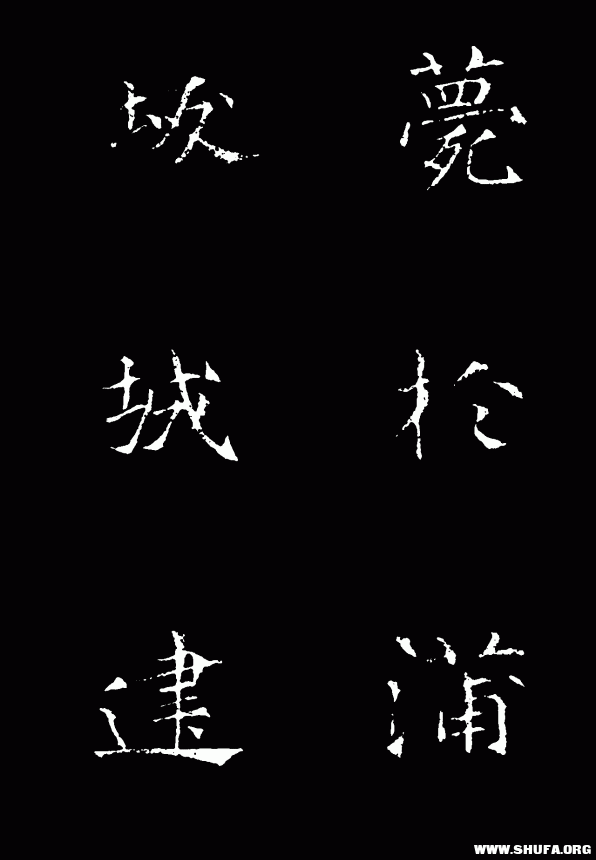 薨於蒲
坂城建
WWW.SHUFA.ORG